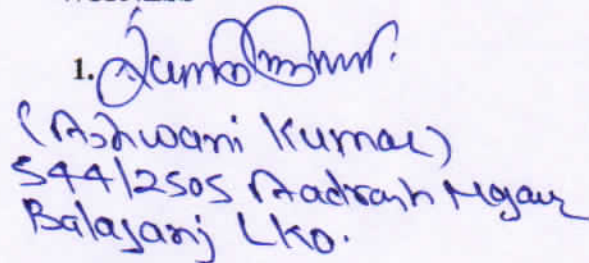 1.
(Ashwani Kumar)
544/2505 Aadrash Nagar
Balaganj LKO.